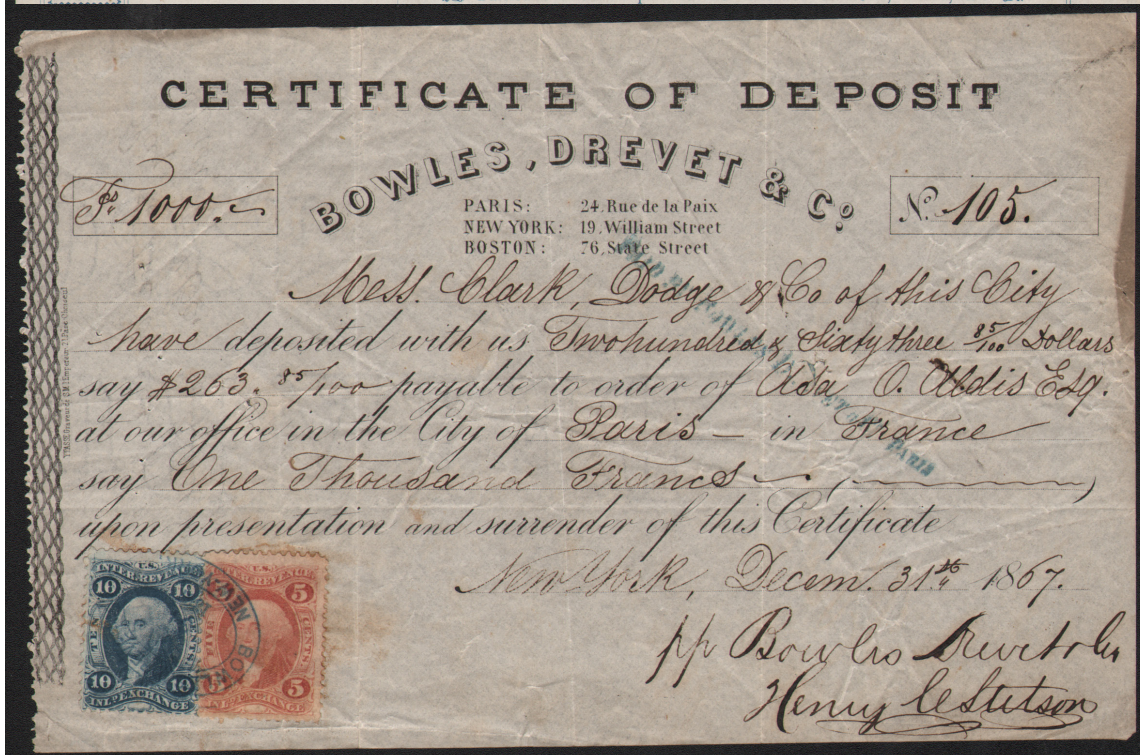 CERTIFICATE OF DEPOSIT
BOWLES, DREVET & Co
Fr. 1000.-
PARIS: 24. Rue de la Paix
No. 105.
NEW YORK: 19. William Street
BOSTON: 76, State Street
Mess. Clark, Dodge & Co of this City
have deposited with us Twohundred & Sixtythree 85/100 Dollars
say $263. 85/100 payable to order of Asa O. Aldis Esq.
at our office in the City of Paris — in France
say One Thousand Francs
upon presentation and surrender of this Certificate
New York, Decem. 31st 1867.
pp Bowles Drevet & Co
Henry C Stetson
U.S. INTER. REVENUE
10 10
TEN CENTS
10 10
INL EXCHANGE
U.S. INTER. REVENUE
5
FIVE CENTS
5
EXCHANGE
PARIS